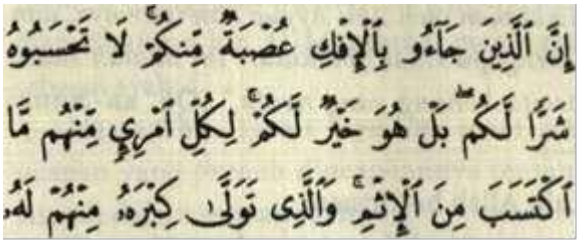 إِنَّ ٱلَّذِينَ جَآءُو بِٱلْإِفْكِ عُصْبَةٌ مِّنكُمْ ۚ لَا تَحْسَبُوهُ
شَرًّا لَّكُم ۖ بَلْ هُوَ خَيْرٌ لَّكُمْ ۚ لِكُلِّ ٱمْرِئٍ مِّنْهُم مَّا
ٱكْتَسَبَ مِنَ ٱلْإِثْمِ ۚ وَٱلَّذِى تَوَلَّىٰ كِبْرَهُۥ مِنْهُمْ لَهُۥ